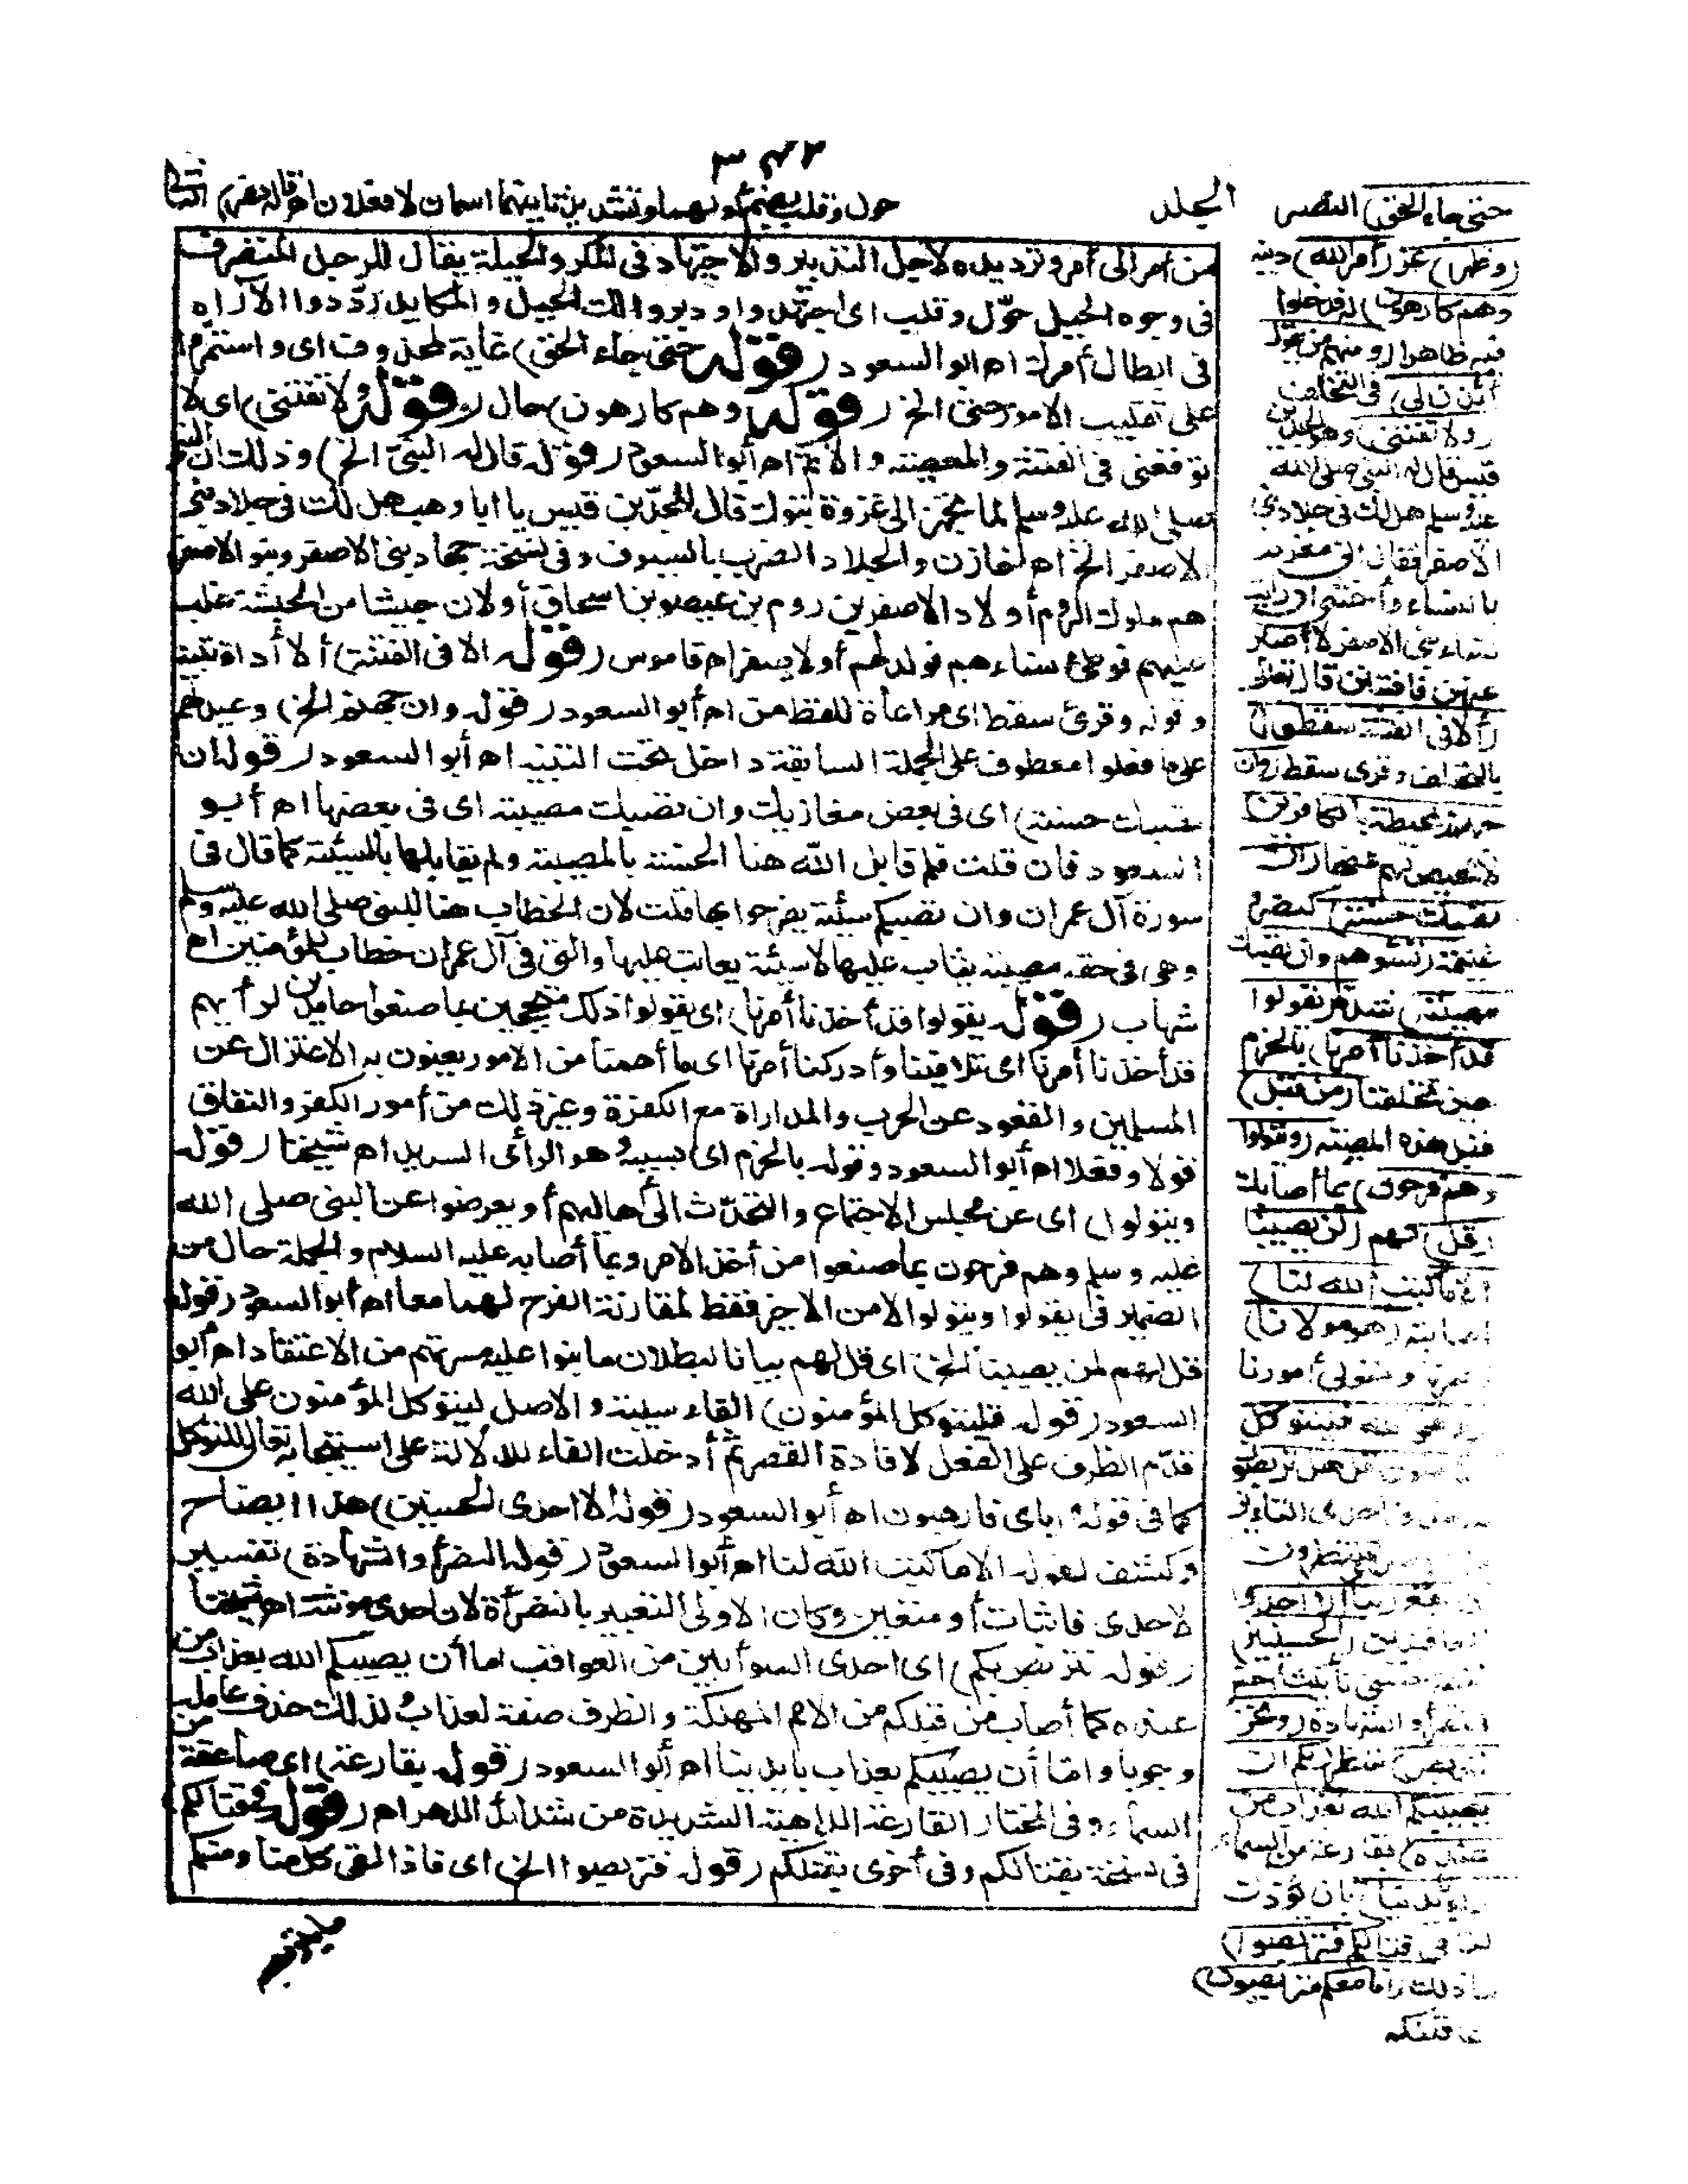 ٣٤٣
حول وقلب بضم أولهما وتشديد ثانيهما
الجلد
من أمر إلى أمر وترديده لأجل التدبير والاجتهاد في المكر والحيلة يقال للرجل المتصرف
في وجوه الحيل حوّل وقلب اى اجتهدوا ودبروا لك الحيل والمكايد ردّدوا الآراء
في ابطال أمرك اه ابو السعود (قوله حتى جاء الحق) غاية لمحذوف اى واستمروا
على تقليب الامور حتى الخ (قوله وهم كارهون) حال (قوله ولا تفتنى) اى لا
توقعنى في الفتنة والمعصية والاثم اه أبو السعود (قوله قال له النبي الخ) وذلك ان النبي
صلى الله عليه وسلم لما تجهز الى غزوة تبوك قال للجد بن قيس يا ابا وهب هل لك في جلاد بنى
الاصفر الخ اه خازن والجلاد الضرب بالسيوف وفى نسخة جهاد بنى الاصفر وبنو الاصفر
هم ملوك الروم أولاد الاصفر بن روم بن عيصو بن اسحاق أو لان جيشا من الحبشة غلب
عليهم فوطئ نساءهم فولد لهم أولاد صفر اه قاموس (قوله الا في الفتنة) ألا أداة تنبيه
وقوله وقرئ سقط اى مراعاة للفظ من اه أبو السعود (قوله وان جهنم الخ) وعيد لهم
على ما فعلوا معطوف على الجملة السابقة داخل تحت التنبيه اه أبو السعود (قوله ان
تصبك حسنة) اى في بعض مغازيك وان تصبك مصيبة اى في بعضها اه أبو
السعود فان قلت فلم قابل الله هنا الحسنة بالمصيبة ولم يقابلها بالسيئة كما قال في
سورة آل عمران وان تصبكم سيئة يفرحوا بها قلت لان الخطاب هنا للنبي صلى الله عليه وسلم
وهى في حقه مصيبة يثاب عليها لا سيئة يعاتب عليها والتى في آل عمران خطاب للمؤمنين اه
شهاب (قوله يقولوا قد أخذنا أمرنا) اى يقولوا ذلك متبجحين بما صنعوا حامدين لرأيهم
قد أخذنا أمرنا اى تلافينا وأدركنا أمرنا اى ما أهمنا من الامور يعنون به الاعتزال عن
المسلمين والقعود عن الحرب والمداراة مع الكفرة وغير ذلك من أمور الكفر والنفاق
قولا وفعلا اه أبو السعود وقوله بالحزم اى بسببه وهو الرأى السديد اه شيخنا (قوله
ويتولوا) اى عن مجلس الاجتماع والتحدّث الى أهاليهم أو يعرضوا عن النبي صلى الله
عليه وسلم وهم فرحون بما صنعوا من أخذ الامر وبما أصابه عليه السلام والجملة حال من
الضمير في يقولوا ويتولوا لا من الاخير فقط لمقارنة الفرح لهما معا اه أبو السعود (قوله
قل لهم لن يصيبنا الخ) اى قل لهم بيانا لبطلان ما بنوا عليه مسرتهم من الاعتقاد اه أبو
السعود (قوله فليتوكل المؤمنون) الفاء سببية والاصل ليتوكل المؤمنون على الله
قدّم الظرف على الفعل لافادة القصر ثم أدخلت الفاء للدلالة على استيجابه تعالى للتوكل
كما في قوله واياى فارهبون اه أبو السعود (قوله الا احدى الحسنيين) هذا ايضاح
وكشف لقوله الا ما كتب الله لنا اه أبو السعود (قوله النصر أو الشهادة) تفسير
لاحدى وكان الاولى التعبير بالنصرة لان احدى مؤنثة اه شيخنا
(قوله نتربص بكم) اى احدى السوأيين من العواقب اما أن يصيبكم الله بعذاب من
عنده كما أصاب من قبلكم من الامم المهلكة والظرف صفة لعذاب ولذلك حذف عامله
وجوبا واما أن يصيبكم بعذاب بأيدينا اه أبو السعود (قوله بقارعة) اى صاعقة من
السماء وفى المختار القارعة الداهية الشديدة من شدائد الدهر اه (قوله بقتالكم)
في نسخة بقتالكم وفى أخرى بقتلكم (قوله فتربصوا الخ) اى فاذا لقى كل منا ومنكم
حتى جاء الحق) النصر
(وظهر) عز (أمر الله) دينه
(وهم كارهون) له فدخلوا
فيه ظاهرا (ومنهم من يقول
ائذن لى) في التخلف
(ولا تفتنى) وهو الجد بن
قيس قال له النبي صلى الله
عليه وسلم هل لك في جلاد بنى
الاصفر فقال انى مغرم
بالنساء وأخشى ان رأيت
نساء بنى الاصفر لا أصبر
عنهن فافتتن قال تعالى
(ألا في الفتنة سقطوا)
بالتخلف وقرئ سقط (وان
جهنم لمحيطة بالكافرين)
لا محيص لهم عنها (ان
تصبك حسنة) كنصر
وغنيمة (تسؤهم وان تصبك
مصيبة) شدة (يقولوا
قد أخذنا أمرنا) بالحزم
حين تخلفنا (من قبل)
قبل هذه المصيبة (ويتولوا
وهم فرحون) بما أصابك
(قل) لهم (لن يصيبنا
الا ما كتب الله لنا)
اصابته (هو مولانا)
ناصرنا ومتولى أمورنا
(وعلى الله فليتوكل
المؤمنون قل هل تربصون)
فيه حذف احدى التاءين
تنتظرون
الا احدى
الحسنيين)
النصر أو الشهادة (ونحن
نتربص) ننتظر (بكم أن
يصيبكم الله بعذاب من
عنده) بقارعة من السماء
(أو بأيدينا) بأن يؤذن
لنا في قتالكم (فتربصوا)
بنا ذلك (انا معكم متربصون)
عاقبتكم